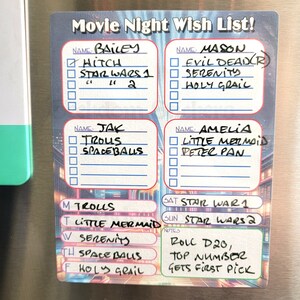 Movie Night Wish List!
NAME: BAILEY
HITCH
STAR WARS 1
" " 2
NAME: MASON
EVIL DEAD(R)
SERENITY
HOLY GRAIL
NAME: JAK
TROLLS
SPACEBALLS
NAME: AMELIA
LITTLE MERMAID
PETER PAN
M TROLLS
T LITTLE MERMAID
W SERENITY
TH SPACEBALLS
F HOLY GRAIL
SAT STAR WAR 1
SUN STAR WARS 2
NOTES:
ROLL D20,
TOP NUMBER
GETS FIRST PICK